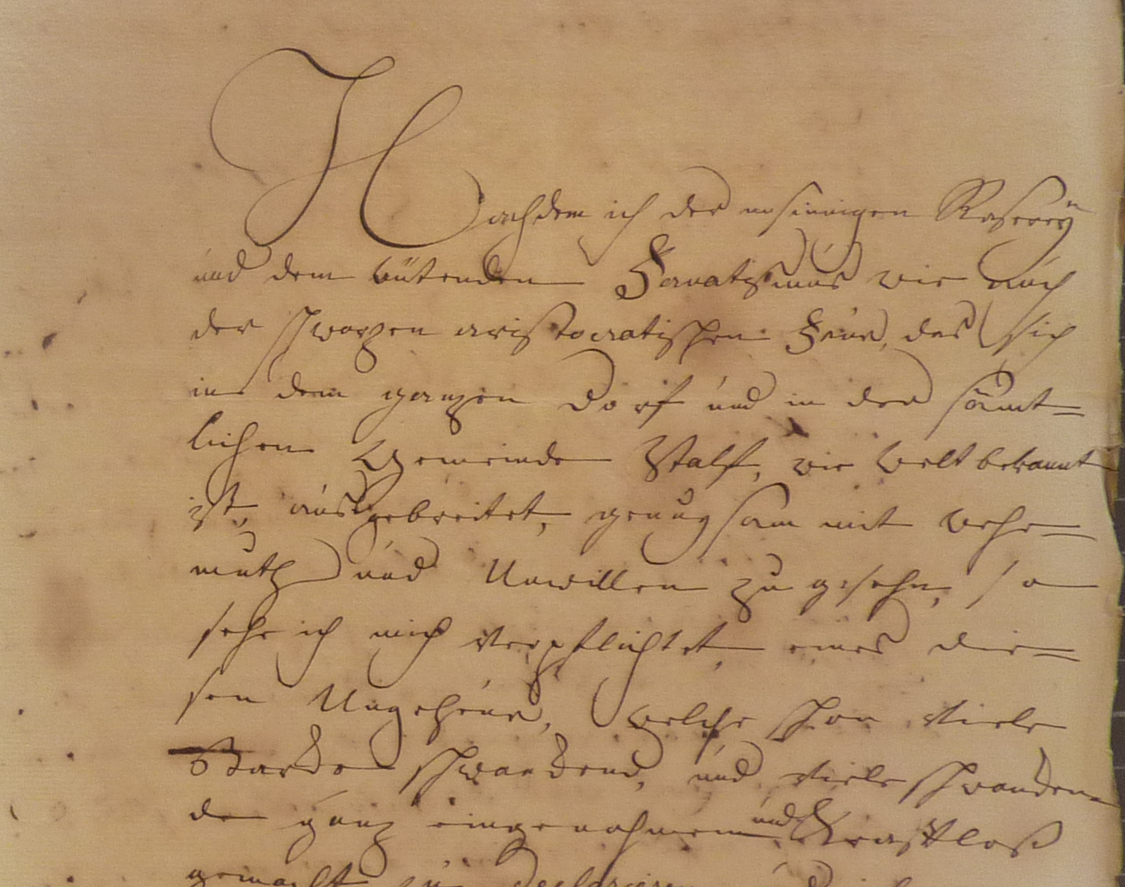 Nachdem ich der unsinnigen Raserey
und dem wütenden Fanatismus wie auch
der schwarzen aristocratischen Feüer, das sich
in dem ganzen Dorf und in der sämt=
lichen Gemeinde Stalf, wie weltbekannt
ist, ausgebreitet, genugsam mit wehe=
muth und Unwillen zu gesehn, so
sehe ich mich verpflichtet, eines die=
sen Ungeheüer, welche schon viele
schwankend, und viele schwanken=
de ganz eingenohmen und Krafftloß
gemacht zu